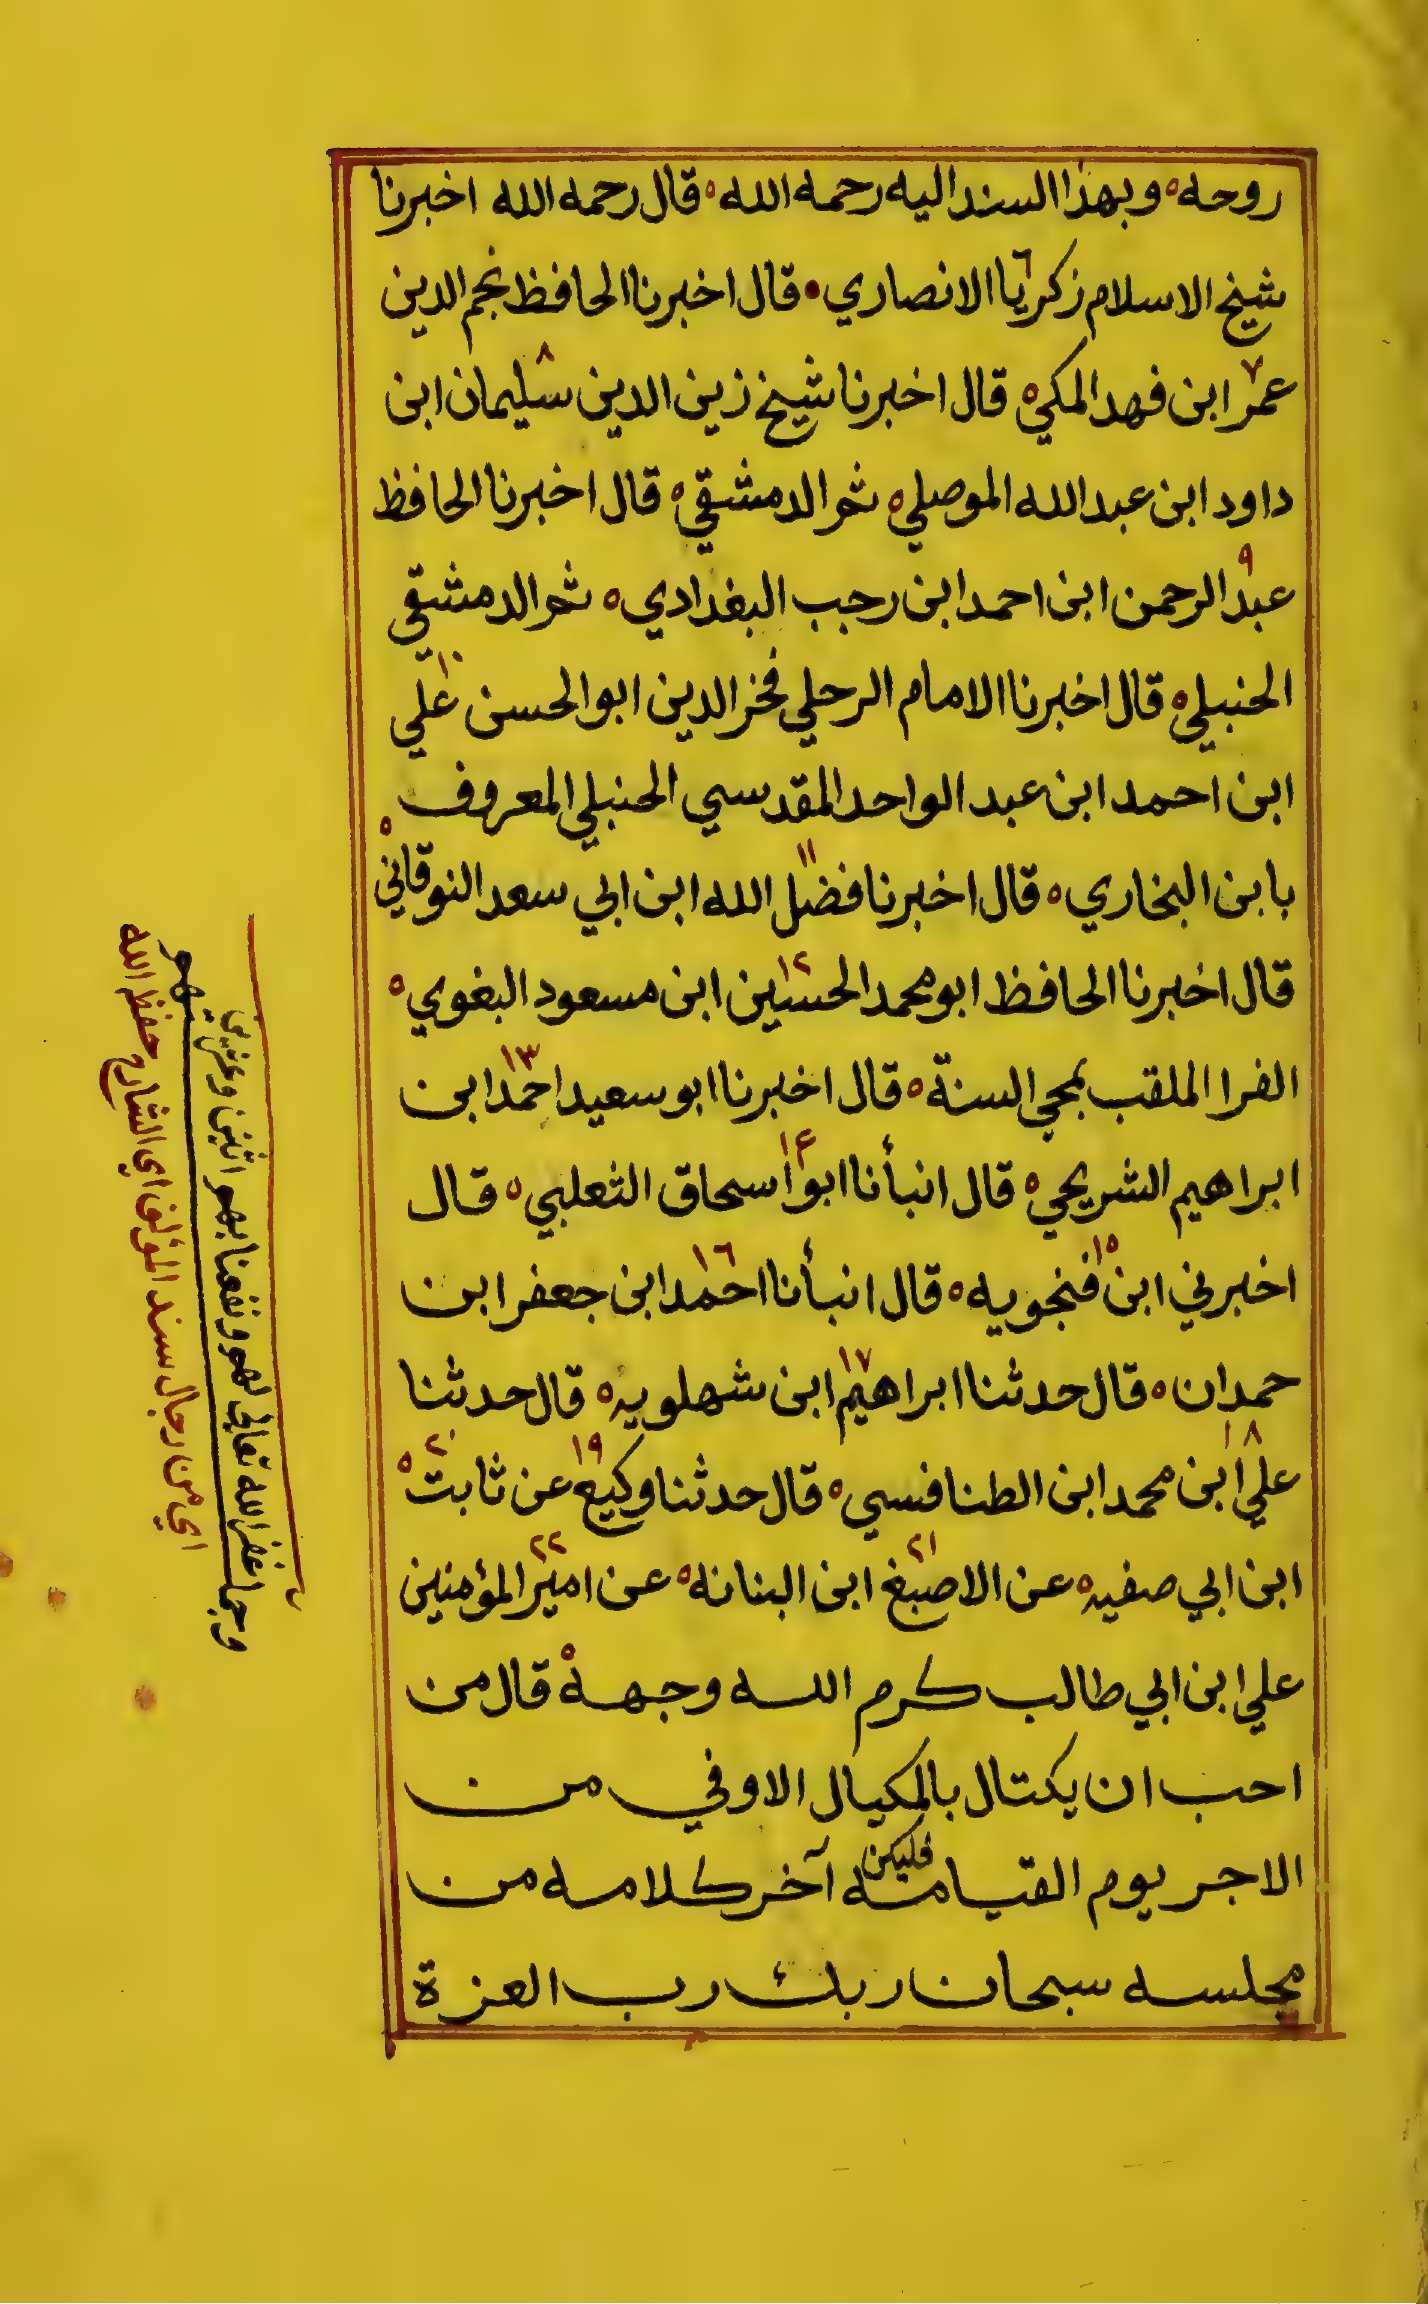 روحه ه وبهذا السند اليه رحمه الله ه قال رحمه الله اخبرنا
شيخ الاسلام زكريا ٦ الانصاري ه قال اخبرنا الحافظ نجم الدين
عمر ٧ ابن فهد المكي ه قال اخبرنا شيخ زين الدين سليمان ٨ ابن
داود ابن عبد الله الموصلي ه ثم الدمشقي ه قال اخبرنا الحافظ
عبد ٩ الرحمن ابن احمد ابن رجب البغدادي ه ثم الدمشقي
الحنبلي ه قال اخبرنا الامام الرحلي فخر الدين ابو الحسن علي ١٠
ابن احمد ابن عبد الواحد المقدسي الحنبلي المعروف
بابن البخاري ه قال اخبرنا فضل ١١ الله ابن ابي سعد النوقاني ه
قال اخبرنا الحافظ ابو محمد الحسين ١٢ ابن مسعود البغوي ه
الفرا الملقب بمحي السنة ه قال اخبرنا ابو سعيد احمد ١٣ ابن
ابراهيم الشريحي ه قال انبأنا ابو ١٤ اسحاق الثعلبي ه قال
اخبرني ابن فنجويه ١٥ ه قال انبأنا احمد ١٦ ابن جعفر ابن
حمدان ه قال حدثنا ابراهيم ١٧ ابن شهلويه ه قال حدثنا
علي ١٨ ابن محمد ابن الطنافسي ه قال حدثنا وكيع ١٩ عن ثابت ٢٠ ه
ابن ابي صفيه ه عن الاصبغ ٢١ ابن البنانه ه عن امير ٢٢ المؤمنين
علي ابن ابي طالب كرم الله وجهه ه قال من
احب ان يكتال بالمكيال الاوفي من
الاجر يوم القيامه فليكن آخر كلامه من
مجلسه سبحان ربك رب العزة
وجملـ غفر الله تعالي لهم ونفعنا بهم اثنين وعشرين
اي من رجال سند المؤلف اي الشارح حفظ الله